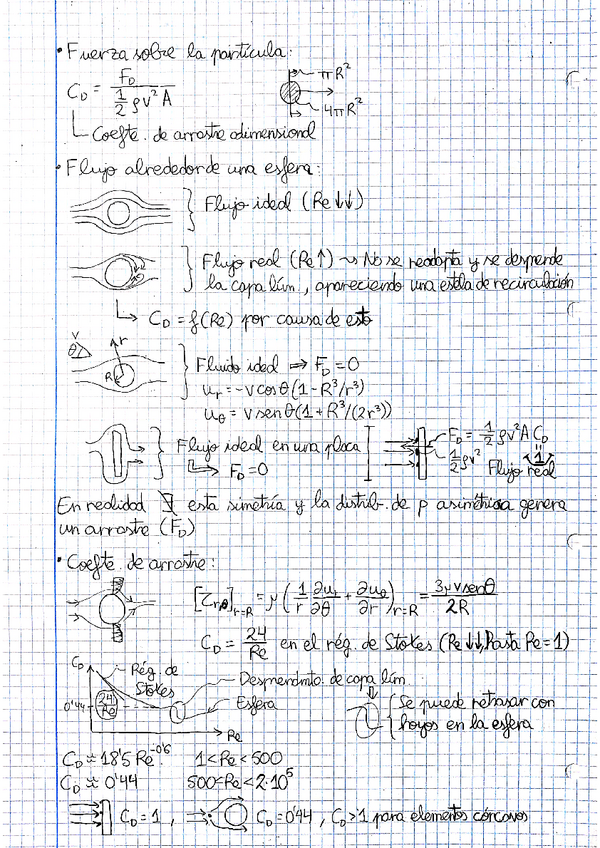 • Fuerza sobre la partícula:
C_D = F_D / (1/2 ρv²A)
πR²
4πR²
Coefte. de arrastre adimensional
• Flujo alrededor de una esfera:
Flujo ideal (Re ↓↓)
Flujo real (Re ↑) ~> No se readapta y se desprende
la capa lím., apareciendo una estela de recirculación
C_D = f(Re) por causa de esto
V
θ
r
R
Fluido ideal ⇒ F_D = 0
u_r = -v cosθ (1 - R³/r³)
u_θ = v senθ (1 + R³/(2r³))
Flujo ideal en una placa
⇒ F_D = 0
F_D = 1/2 ρv²A C_D
1/2 ρv²
"1"
Flujo real
En realidad ∄ esta simetría y la distrib. de p asimétrica genera
un arrastre (F_D)
• Coefte. de arrastre:
[τ_rθ]_r=R = μ (1/r ∂u_r/∂θ + ∂u_θ/∂r)_r=R = 3μv senθ / 2R
C_D = 24/Re en el rég. de Stokes (Re ↓↓, hasta Re = 1)
C_D
Rég. de
Stokes
Desprendmto. de capa lím.
Esfera
0'44
24/Re
Re
Se puede retrasar con
hoyos en la esfera
C_D ≈ 18'5 Re^-0'6 1 < Re < 500
C_D ≈ 0'44 500 < Re < 2·10⁵
C_D = 1, C_D = 0'44, C_D > 1 para elementos cóncavos